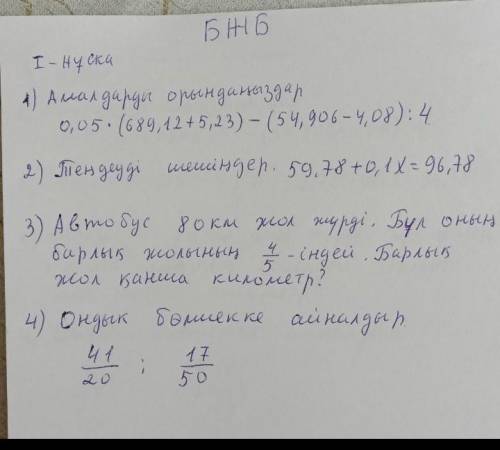 БЖБ
I - нұсқа
1) Амалдарды орындаңыздар
0,05 · (689,12+5,23) – (54,906–4,08) : 4
2) Теңдеуді шешіңдер. 59,78 + 0,1x = 96,78
3) Автобус 80 км жол жүрді. Бұл оның
барлық жолының 4/5 - індей. Барлық
жол қанша километр?
4) Ондық бөлшекке айналдыр
41/20 ; 17/50